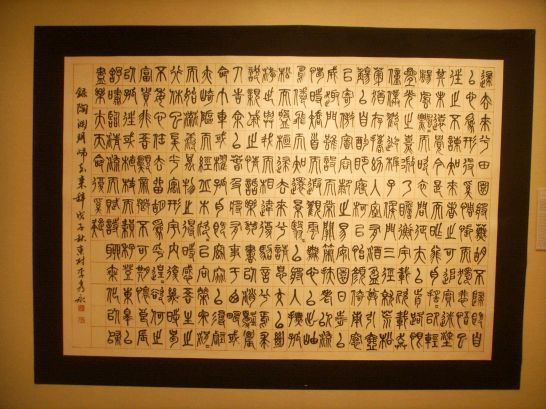 歸去來兮田園將蕪胡不歸既自
以心爲形役奚惆悵而獨悲悟已
往之不諫知來者之可追實迷塗
其未遠覺今是而昨非舟遙〻以輕
颺風飄〻而吹衣問征夫以前路恨
晨光之熹微乃瞻衡宇載欣載奔
僮僕歡迎稚子候門三徑就荒松
菊猶存攜幼入室有酒盈樽引壺
觴以自酌眄庭柯以怡顏倚南窗
以寄傲審容膝之易安園日涉以
成趣門雖設而常關策扶老以流
憩時矯首而遐觀雲無心以出岫
鳥倦飛而知還景翳〻以將入撫孤
松而盤桓歸去來兮請息交以絶
游世與我而相違復駕言兮焉求
悅親戚之情話樂琴書以消憂農
人告余以春及將有事於西疇或
命巾車或棹孤舟既窈窕以尋壑
亦崎嶇而經丘木欣〻以向榮泉涓〻
而始流善萬物之得時感吾生之
行休已矣乎寓形宇內復幾時曷
不委心任去留胡爲乎遑〻欲何之
富貴非吾願帝鄉不可期懷良辰
以孤往或植杖而耘耔登東皋以
舒嘯臨清流而賦詩聊乘化以歸
盡樂夫天命復奚疑
錄陶淵明歸去來辭 戊子秋 東村 李秀永